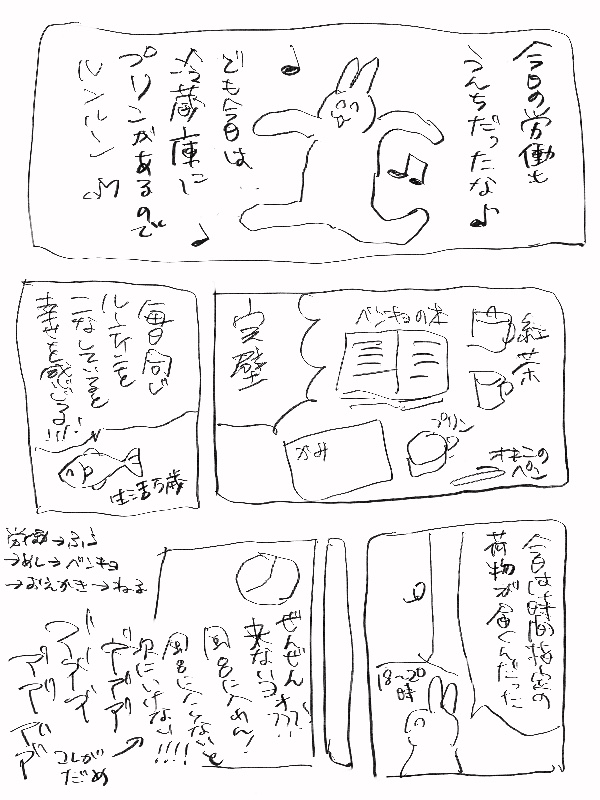 今日の労働も
うんちだったな♪
でも今日は
冷蔵庫に
プリンがあるので
ルンルーン♫
紅茶
ベンキョの本
プリン
オキニの
ペン
かみ
完璧
毎日同じ
ルーティンを
こなしていると
幸せを感じる!!!!
生活万歳
今日は時間指定の
荷物が届くんだった
18〜20
時
ぜんぜん
来ないヨォ???
風呂に入れん!
風呂に入らないと
次にいけない!!!!
労働→ふろ
→めし→ベンキョ
→おえかき→ねる
コレが
だめ